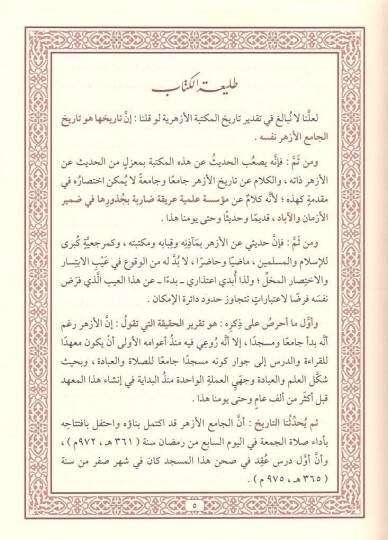 طليعة الكتاب
لعلَّنا لا نُبالغ في تقدير تاريخ المكتبة الأزهرية لو قلنا : إنَّ تاريخها هو تاريخ
الجامع الأزهر نفسه .
ومن ثَمَّ : فإنَّه يصعُب الحديثُ عن هذه المكتبة بمعزلٍ من الحديث عن
الأزهر ذاته ، والكلام عن تاريخ الأزهر جامعًا وجامعةً لا يُمكن اختصارُه في
مقدمةٍ كهذه ؛ لأنَّه كلامٌ عن مؤسسة علمية عريقة ضاربة بجُذورِها في ضمير
الأزمان والآباد ، قديمًا وحديثًا وحتى يومنا هذا .
ومن ثَمَّ : فإنَّ حديثي عن الأزهر بمَآذِنِه وقِبابِه ومكتبتِه ، وكمرجعيَّةٍ كُبرى
للإسلام والمسلمين ، ماضيًا وحاضرًا ، لا بُدَّ له من الوقوع في عَيْبِ الابتِسار
والاختِصار المخلِّ ؛ ولذا أُبدي اعتذاري ـ بدءًا ـ عن هذا العيب الَّذي فَرَض
نفسَه فرضًا لاعتباراتٍ تتجاوز حدود دائرة الإمكان .
وأوَّل ما أحرصُ على ذِكرِه : هو تقرير الحقيقة التي تقولُ : إنَّ الأزهر رغم
أنَّه بدأ جامعًا ومسجدًا ، إلا أنَّه رُوعِي فيه منذُ أعوامه الأولى أنْ يكون معهدًا
للقراءة والدرس إلى جوار كونه مسجدًا جامعًا للصلاة والعبادة ، وبحيث
شكَّل العلم والعبادة وجهَيِ العملةِ الواحدة منذُ البداية في إنشاء هذا المعهد
قبل أكثر من ألف عامٍ وحتى يومنا هذا .
ثم يُحدِّثُنا التاريخ : أنَّ الجامع الأزهر قد اكتمل بناؤه واحتفل بافتتاحِه
بأداء صلاة الجمعة في اليوم السابع من رمضان سنة ( ٣٦١ هـ ، ٩٧٢م ) ،
وأنَّ أوَّل درس عُقِد في صحن هذا المسجد كان في شهر صفر من سنة
( ٣٦٥ هـ ، ٩٧٥ م ) .
٥